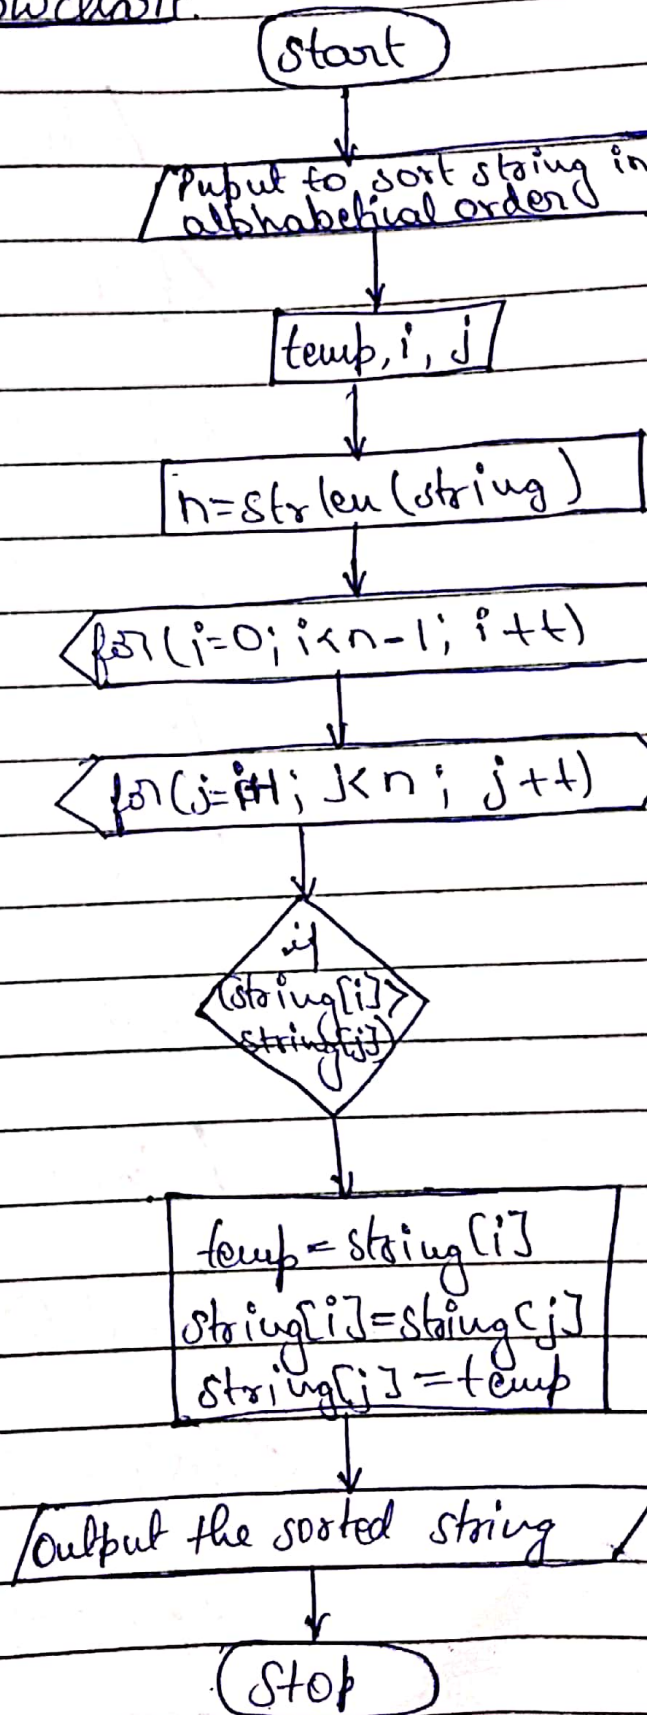 Flowchart.
Start
Input to sort string in
alphabetical order
temp, i, j
n=strlen(string)
for(i=0; i<n-1; i++)
for(j=i+1; j<n; j++)
if
(string[i]>
string[j])
temp = string[i]
string[i]=string[j]
string[j]=temp
Output the sorted string
Stop